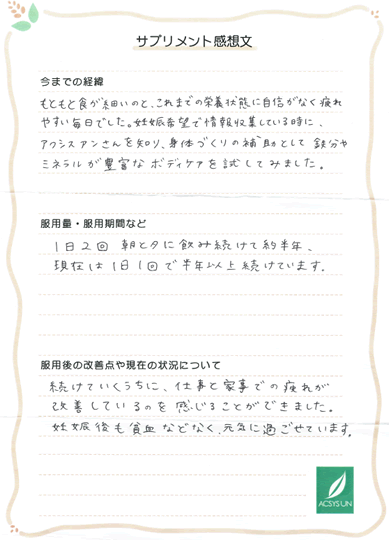 サプリメント感想文
今までの経緯
もともと食が細いのと、これまでの栄養状態に自信がなく疲れ
やすい毎日でした。妊娠希望で情報収集している時に、
アクシスアンさんを知り、身体づくりの補助として 鉄分や
ミネラルが豊富な ボディケアを試してみました。
服用量・服用期間など
1日2回 朝と夕に飲み続けて約半年、
現在は1日1回で半年以上続けています。
服用後の改善点や現在の状況について
続けていくうちに、仕事と家事での疲れが
改善しているのを感じることができました。
妊娠後も貧血などなく、元気に過ごせています。
ACSYSUN